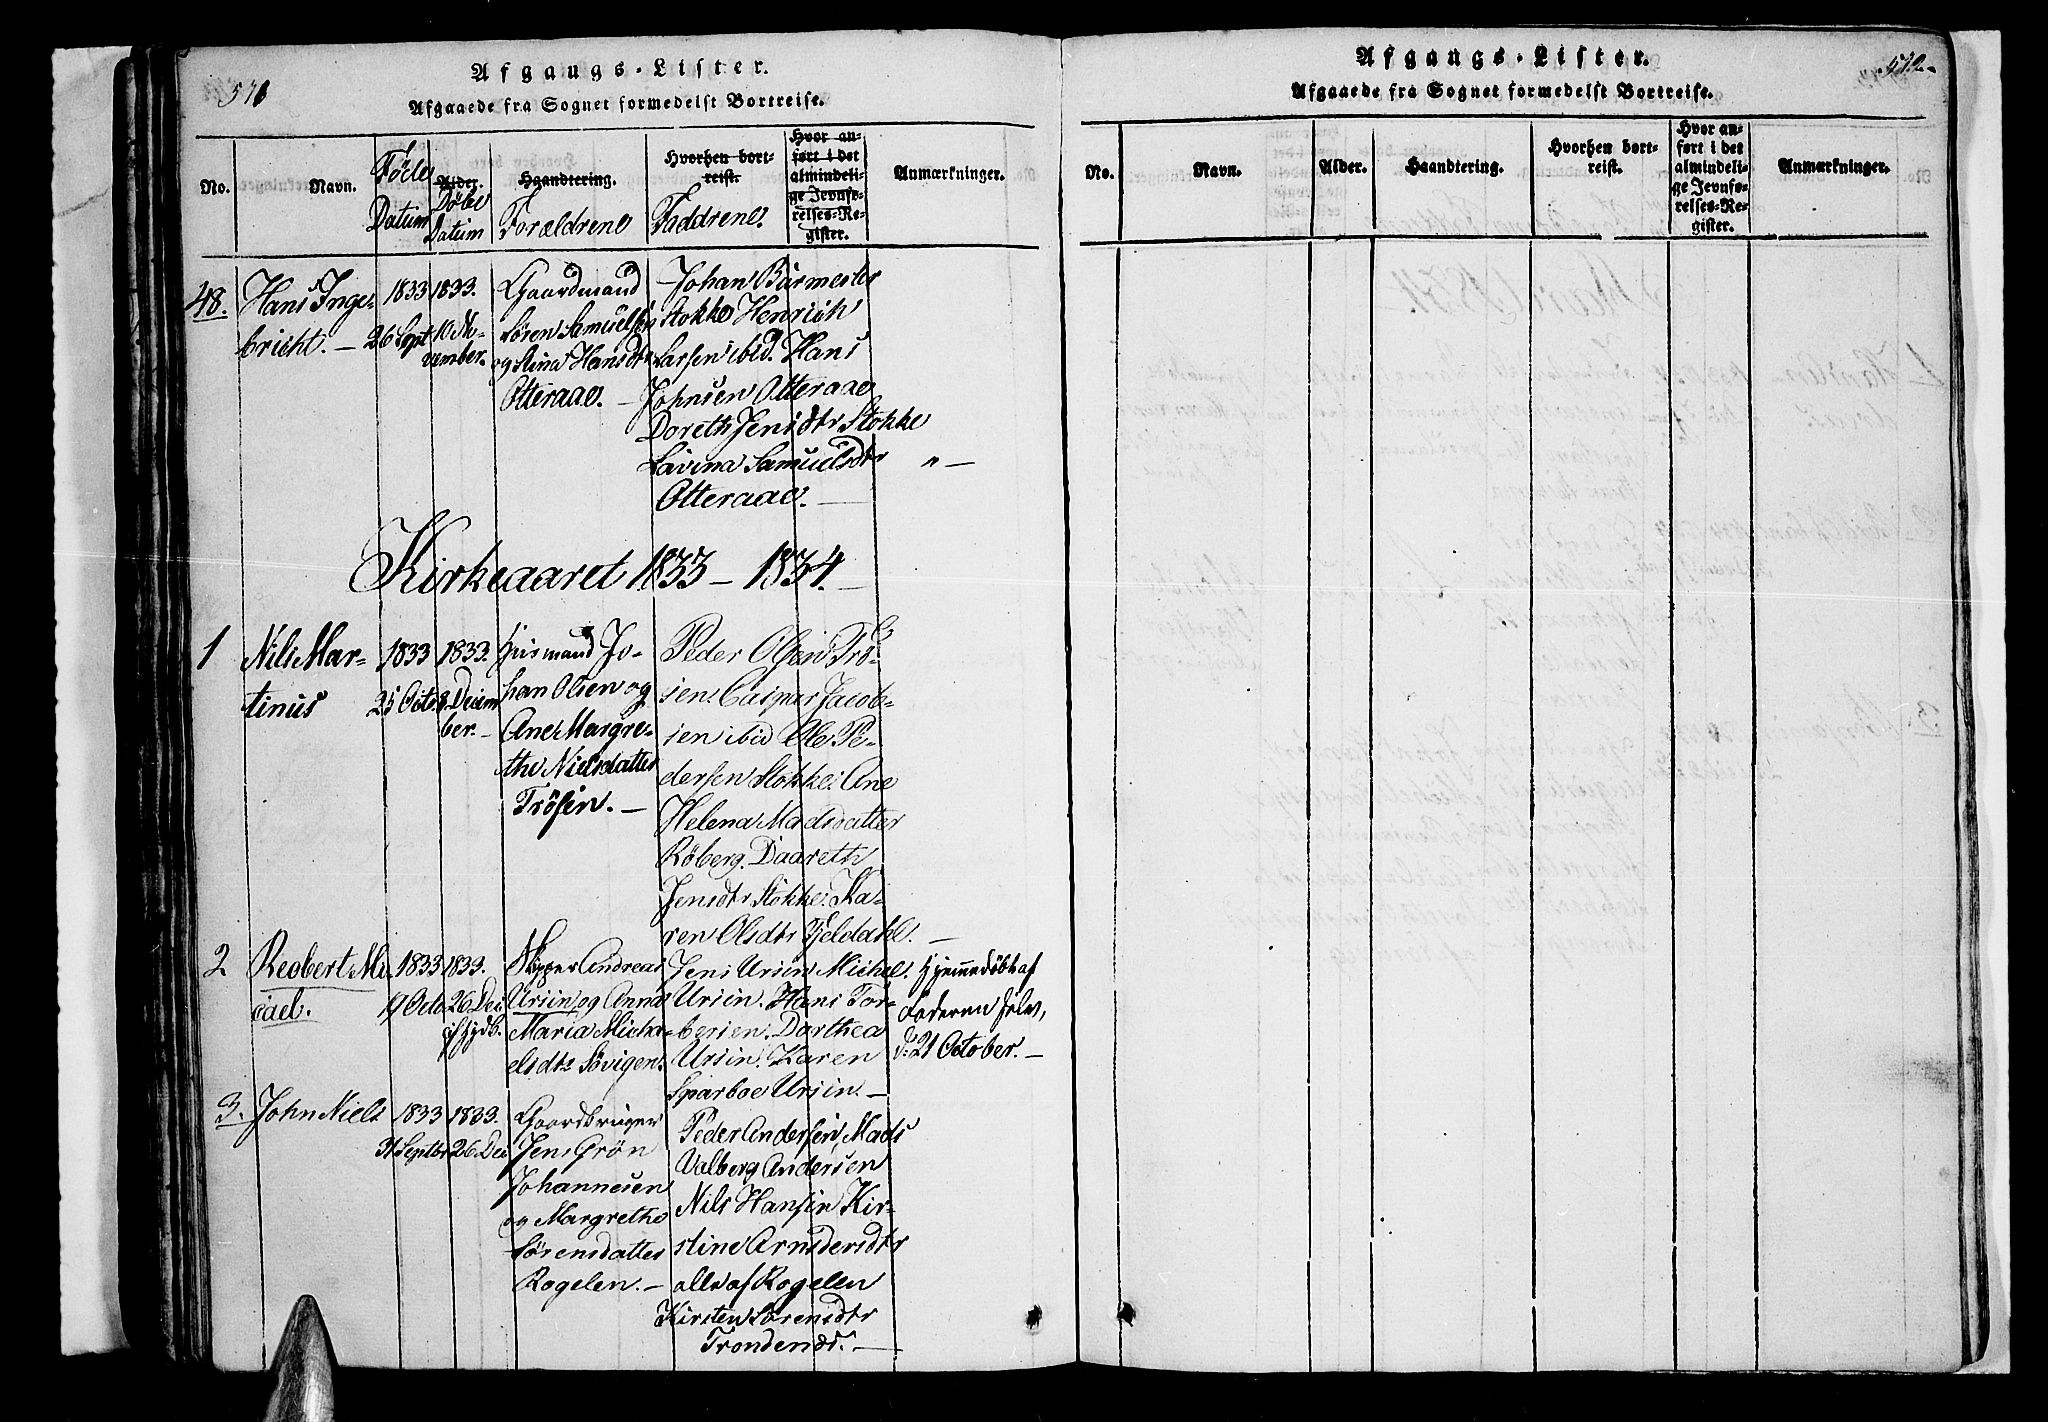 571
Afgangs-Lister.
Afgaaede fra Sognet formedelst Bortreise.
No.
Navn.
Føde
Datum
Alder.
Døbe
Datum
Haandtering.
Forældrene
Hvorhen bort-
reist.
Faddrene.
Hvor an-
ført i det
almindeli-
ge Jevnfø-
relses-Re-
gister.
Anmærkninger.
48.
Hans Inge-
bricht. —
1833
26 Sept
1833.
10 No-
vember.
Gaardmand
Sören Samuelsen
og Stina Hansdtr
Otteraae. —
Johan Barmester
Stokke Henrich
Larsen ibid. Hans
Johnsen Otteraae
Doreth Jensdtr Stokke
Lavina Samuelsdtr
Otteraae. —
" —
Kirkeaaret 1833 — 1834. —
1
Nils Mar-
tinus
1833
25 Octo
1833.
8. Decem
ber. —
Huusmand Jo-
han Olsen og
Ane Margre-
the Nielsdatter
Trösen. —
Peder Olsen Trö-
sen. Caspar Jacob-
sen ibid Ole Pe-
dersen Stokke. Ane
Helena Madsdatter
Röberg. Daareth
Jensdtr Stokke. Ka-
ren Olsdtr Fjeldahl. —
2
Reobert Mi-
cael.
1833
19 Octo
1833.
26 Dec
Skipper Andreas
Ursin og Anna
Maria Micha-
elsdtr Sövigen.
Jens Ursin Michel
Ursin. Hans Tor-
bersen. Dorthea
Ursin. Karen
Sparboe Ursin. —
Hjemmedöbt af
Faderen selv,
d: 21 October. —
3.
John Niels
1833
31 Septbr
1833.
26 Dec
Gaardbruger
Jens Grön
Johannesen
og Margrethe
Sörensdatter
Rogelen. —
Peder Andersen, Mads
Valberg Andersen
Nils Hansen Kir-
stine Arnsdersdtr
alle af Rogelen
Kirsten Sörensdtr
Trondenæs. —
572
Afgangs-Lister.
Afgaaede fra Sognet formedelst Bortreise.
No.
Navn.
Alder.
Haandtering.
Hvorhen bort-
reist.
Hvor an-
ført i det
almindeli-
ge Jevnfø-
relses-Re-
gister.
Anmærkninger.